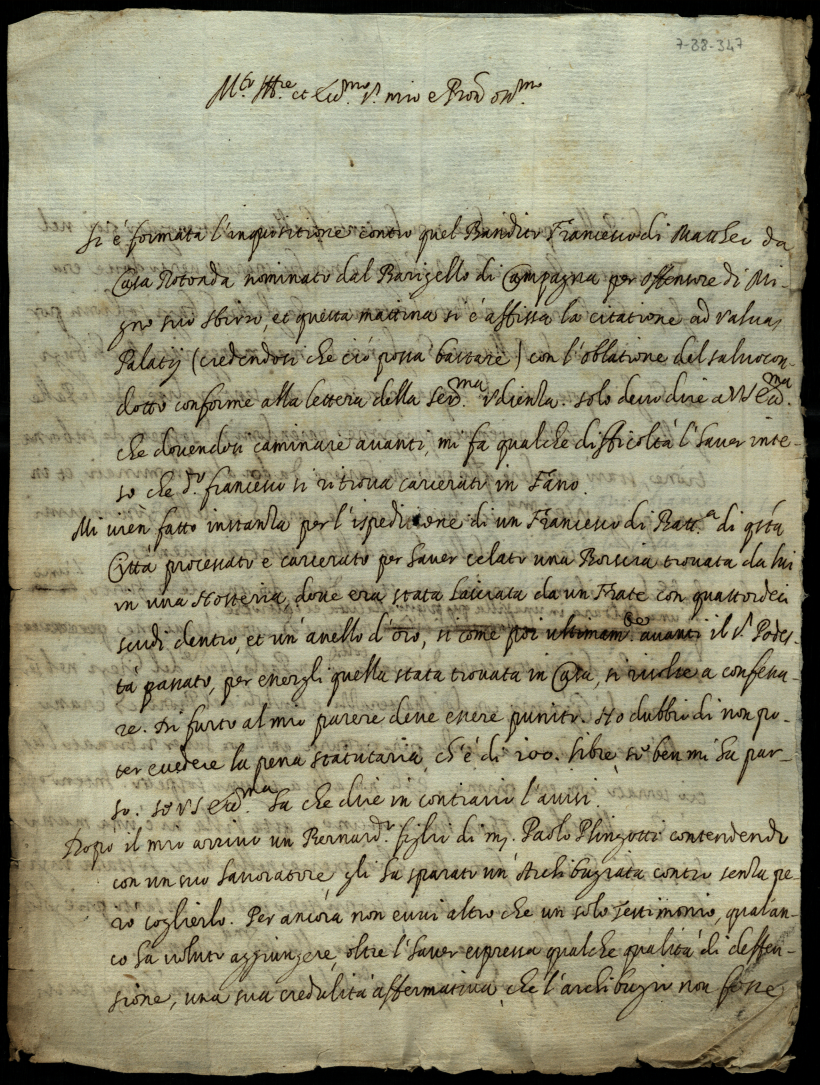 7-38-347
M.to Ill.re et Ecc.mo S.r mio e Pron̄ oss.mo
Si é formata l'inquisitione contro quel Bandito Francesco di Matteo da
Casa Rotonda nominato dal Barigello di Campagna per offensore di Mi-
gno suo sbirro, et questa mattina si é affissa la citatione ad valvas
Palatij (credendosi che ció possa bastare) con l'oblatione del salvocon-
dotto conforme alla lettera della Ser.ma Udienza. solo devo dire a VS Ecc.ma
che dovendosi caminare avanti, mi fa qualche difficoltá l'haver inte-
so che d.o francesco si ritrova carcerato in Fano.
Mi vien fatto instanza per l'ispeditione di un Francesco di Batt.a di q̄sta
Cittá processato e carcerato per haver celato una Borscia trovata da lui
in una Hosteria, dove era stata lasciata da un Frate con quattordeci
scudi dentro, et un'anello d'oro, si come poi ultimam.te avanti il S.r Podes-
tá passato, per essergli quella stata trovata in Casa, si risolse a confessa-
re. Di furto al mio parere deve essere punito. Ho dubbio di non po-
ter eccedere la pena statutaria, ch'é di 100. libre, se ben mi ha par-
so: se VS Ecc.ma ha che dire in contrario l'avisi.
Dopo il mio arrivo un Bernard.o figlio di m. Paolo Plingotti contendendo
con un suo lavoratore gli ha sparato un'Archibugiata contro senza pe-
ro coglierlo. Per ancora non evvi altro che un solo Testimonio, qual an-
co ha voluto aggiungere, oltre l'haver espressa qualche qualitá di deffen-
sione, una sua credulitá affermativa, che l'archibugio non fosse